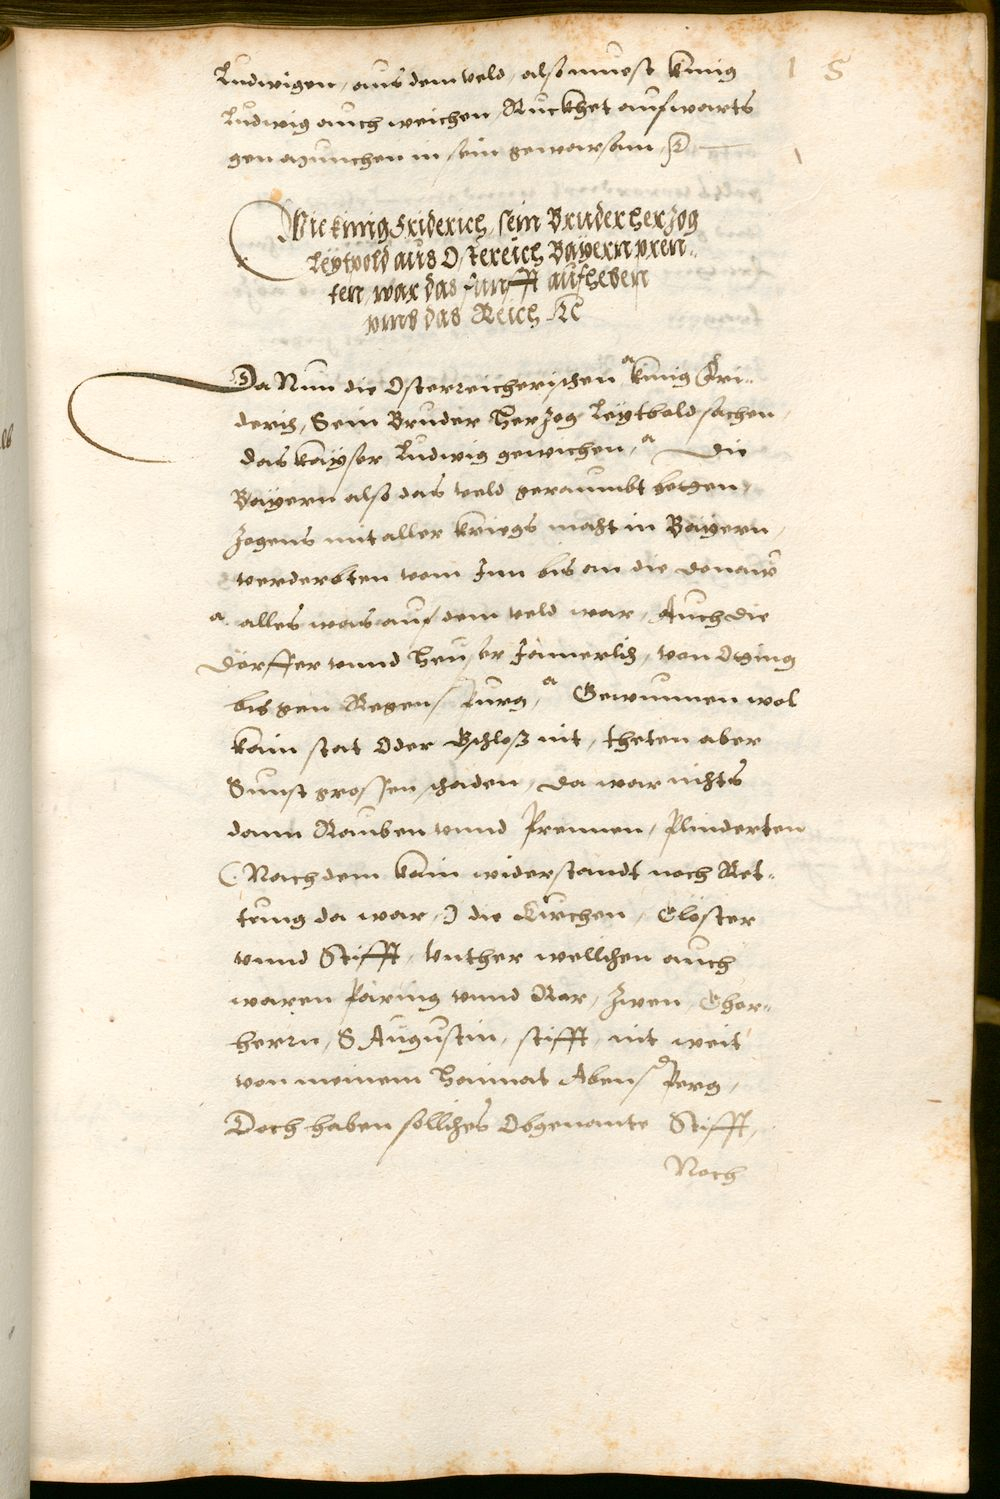 15
Ludwigen, aus dem veld, also muest kunig
Ludwig auch weichen, Ruckhet aufwarts
gen Munchen in sein gewarsam,
Wie kunig Friderich, sein Bruder herzog
Leytpold aus Osstereich Bayern pren-
ten, war das funfft aufheben
vmb das Reich ꝛc
Da Nun die Osterreicherischen kunig Fri-
derich, Sein Bruder Herzog Leytbold sachen,
das kayser Ludwig gewichen, Die
Bayern also das veld geraumbt hetten,
zogens mit aller kriegs macht in Bayern,
verderbten vom Inn bis an die Donaw
alles was auf dem veld war, Auch die
Dörffer vnnd Heuser Jamerlich, von Oting
bis gen Regenspurg, Gewunnen wol
kain stat Oder Gschloß nit, theten aber
Sunst grossen schaden, Da war nichts
dann Rauben vnnd Prennen, Plinderten
(Nachdem kain widerstandt noch Ret-
tung da war,) die Kirchen, Clöster
vnnd Stifft, Vnther wellichen auch
waren Päring vnnd Ror, zwen, Chor-
herrn, S Augustin, stifft, nit weit
von meinem Haimat Abensperg,
Doch haben sölliches Obgenante Stifft,
Noch